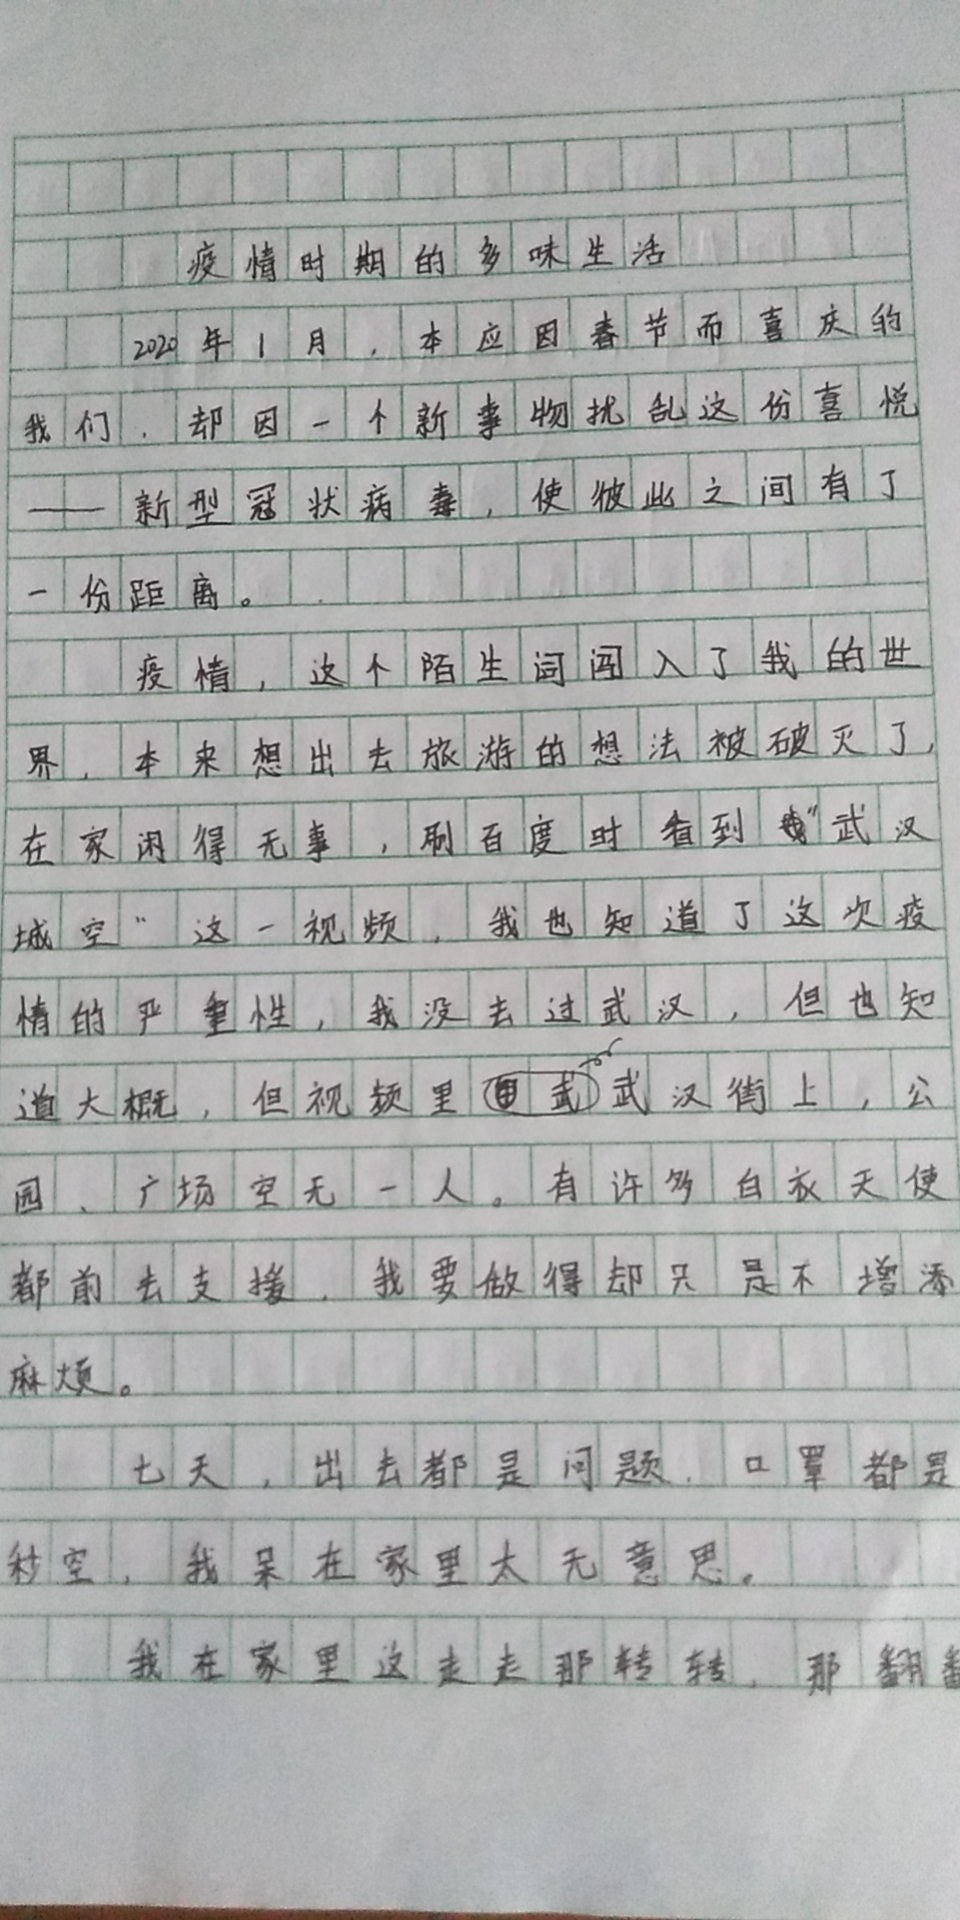 疫情时期的多味生活
2020年1月，本应因春节而喜庆的
我们，却因一个新事物扰乱这份喜悦
——新型冠状病毒，使彼此之间有了
一份距离。
疫情，这个陌生词闯入了我的世
界，本来想出去旅游的想法被破灭了，
在家闲得无事，刷百度时看到“武汉
城空”这一视频，我也知道了这次疫
情的严重性，我没去过武汉，但也知
道大概，但视频里武汉街上，公
园、广场空无一人。有许多白衣天使
都前去支援，我要做得却只是不增添
麻烦。
七天，出去都是问题，口罩都是
秒空，我呆在家里太无意思。
我在家里这走走那转转，那翻翻